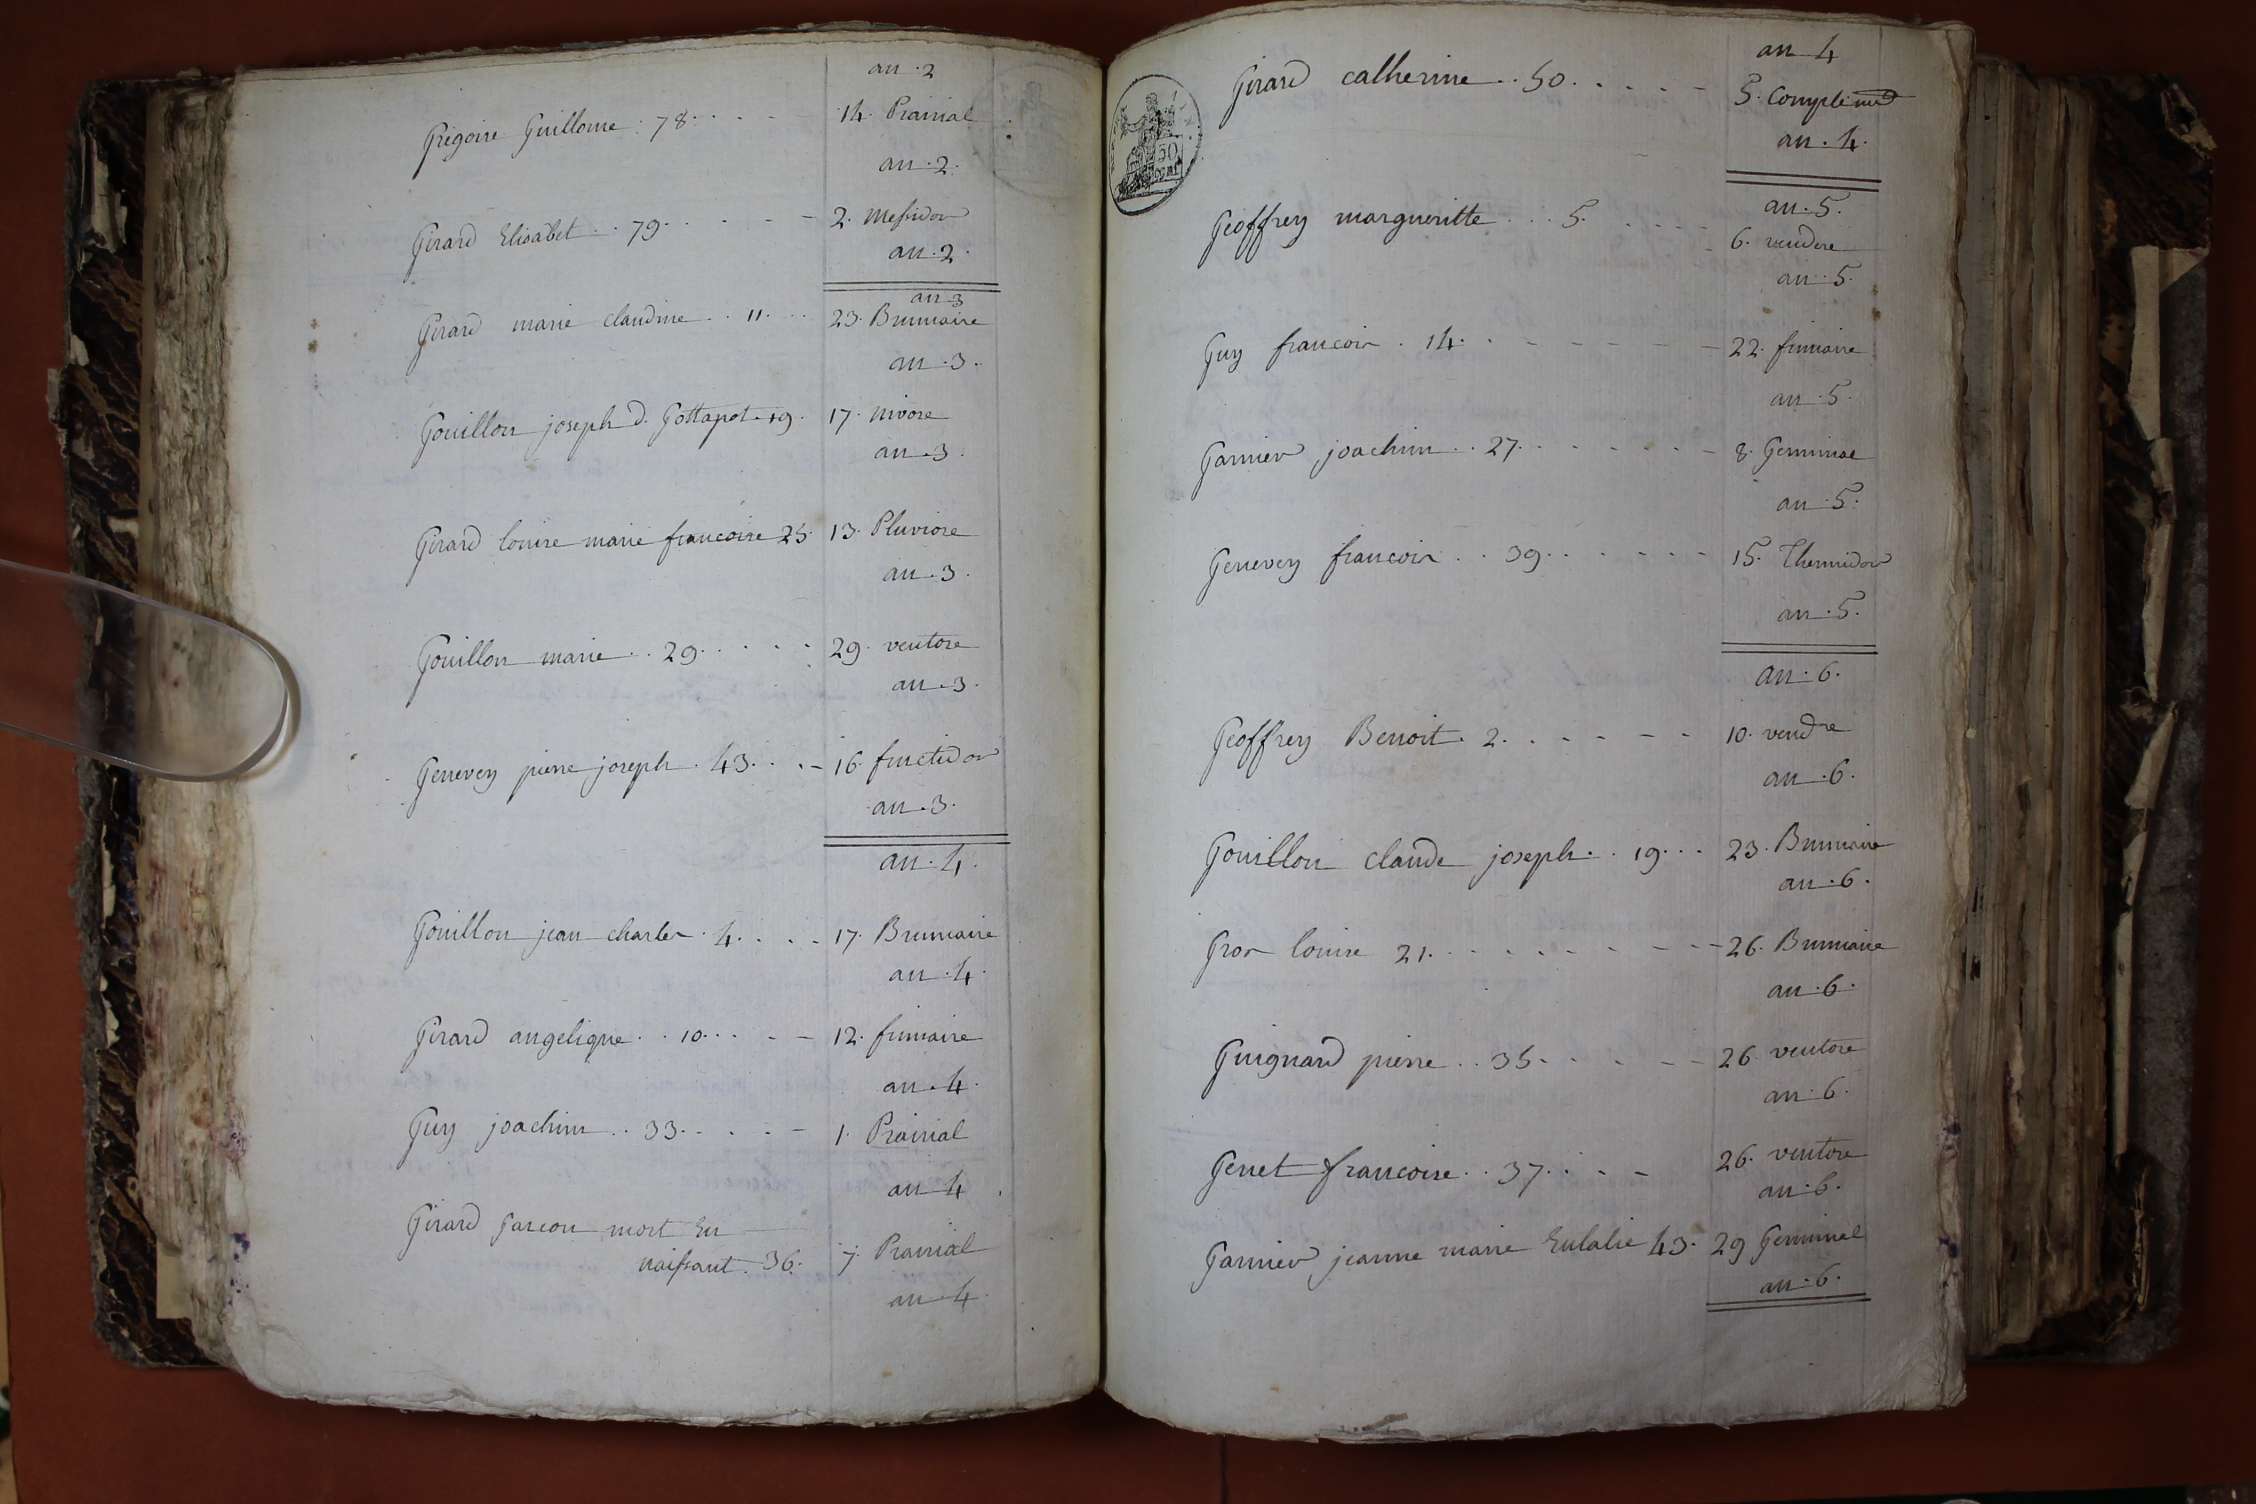 an . 2
Grégoire Guillome . 78 . . . . 14. Prairial
an . 2.
Girard Elisabet . . 79 . . . . - 2. Messidor
an . 2 .
an 3
Girard marie claudine . . 11 . . . 23. Brumaire
an . 3 .
Gouillon joseph d. Gottapot . 19 . 17. nivose
an . 3 .
Girard louise marie francoise 25. 13. Pluviose
an . 3 .
Gouillon marie . . 29 . . . . . 29. ventose
an . 3 .
Genevey pierre joseph . 43 . . . - 16. fructidor
an . 3 .
an . 4 .
Gouillon jean charles . 4 . . . - 17. Brumaire
an . 4 .
Girard angelique . . 10 . . . - - 12. frimaire
an . 4 .
Guy joachim . . 33 . . . . - 1. Prairial
an 4
Girard garcon mort En
naissant . 36 . 7. Prairial
an . 4
an 4
Girard catherine . . 50 . . . . - 5. Complémd
an . 4 .
an . 5 .
Geoffrey margueritte . . . 5 . . . . - 6. vendre
an . 5
Guy francois . 14 . . - - - - - 22. frimaire
an . 5 .
Garnier joachim . . 27 . . . . . - 8. Germinal
an . 5 .
Genevey francois . . 39 . . . . . - 15. Thermidor
an . 5 .
an . 6 .
Geoffrey Benoit . 2 . . . . - - 10. vendre
an . 6 .
Gouillon claude joseph . . 19 . . . 23. Brumaire
an . 6 .
Gros louise 21 . . . . . - - - 26. Brumaire
an . 6 .
Guignard pierre . . 35 . . . . - - 26. ventose
an . 6 .
Genet francoise . . 37 . . . - 26. ventose
an . 6 .
Garnier jeanne marie Eulalie 43 . 29 Germinal
an . 6 .